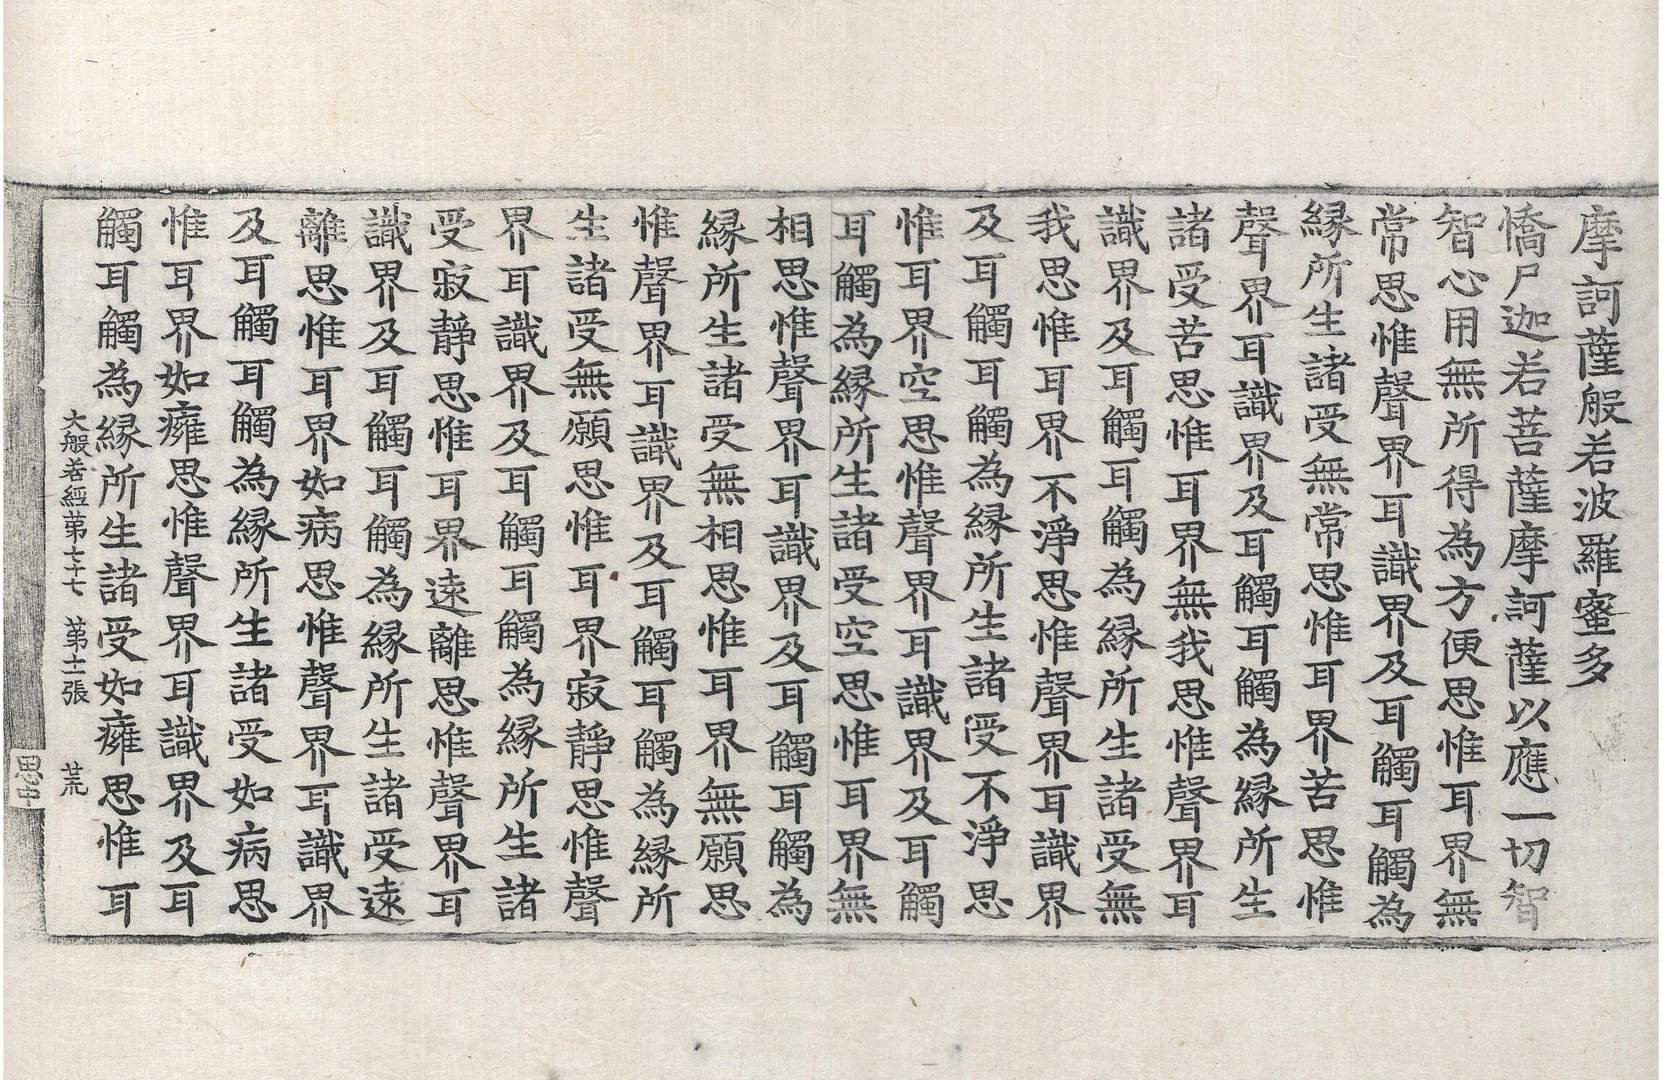 摩訶薩般若波羅蜜多
憍尸迦若菩薩摩訶薩以應一切智
智心用無所得為方便思惟耳界無
常思惟聲界耳識界及耳觸耳觸為
縁所生諸受無常思惟耳界苦思惟
聲界耳識界及耳觸耳觸為縁所生
諸受苦思惟耳界無我思惟聲界耳
識界及耳觸耳觸為縁所生諸受無
我思惟耳界不淨思惟聲界耳識界
及耳觸耳觸為縁所生諸受不淨思
惟耳界空思惟聲界耳識界及耳觸
耳觸為縁所生諸受空思惟耳界無
相思惟聲界耳識界及耳觸耳觸為
縁所生諸受無相思惟耳界無願思
惟聲界耳識界及耳觸耳觸為縁所
生諸受無願思惟耳界寂靜思惟聲
界耳識界及耳觸耳觸為縁所生諸
受寂靜思惟耳界遠離思惟聲界耳
識界及耳觸耳觸為縁所生諸受遠
離思惟耳界如病思惟聲界耳識界
及耳觸耳觸為縁所生諸受如病思
惟耳界如癰思惟聲界耳識界及耳
觸耳觸為縁所生諸受如癰思惟耳
大般若經苐七十七 苐十一張 荒